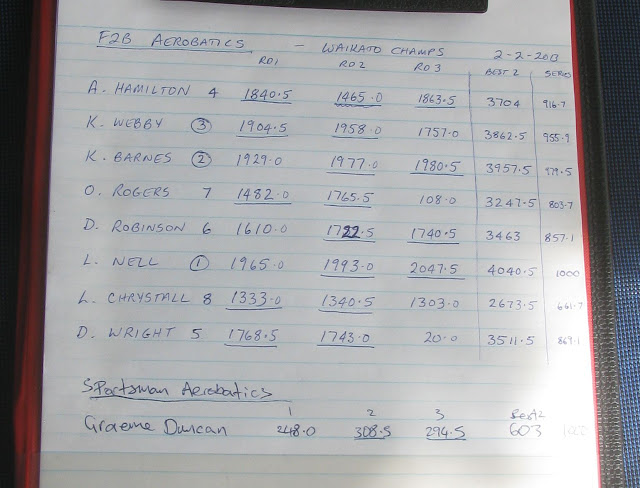 F2B AEROBATICS - WAIKATO CHAMPS 2-2-2013
RD1 RD2 RD3 BEST 2 SERIES
A. HAMILTON 4 1840.5 1465.0 1863.5 3704 916.7
K. WEBBY 3 1904.5 1958.0 1757.0 3862.5 955.9
K. BARNES 2 1929.0 1977.0 1980.5 3957.5 979.5
O. ROGERS 7 1482.0 1765.5 108.0 3247.5 803.7
D. ROBINSON 6 1610.0 1722.5 1740.5 3463 857.1
L. NELL 1 1965.0 1993.0 2047.5 4040.5 1000
L. CHRYSTALL 8 1333.0 1340.5 1303.0 2673.5 661.7
D. WRIGHT 5 1768.5 1743.0 20.0 3511.5 869.1
Sportsman Aerobatics
1 2 3 Best 2
Graeme Duncan 248.0 308.5 294.5 603 1000